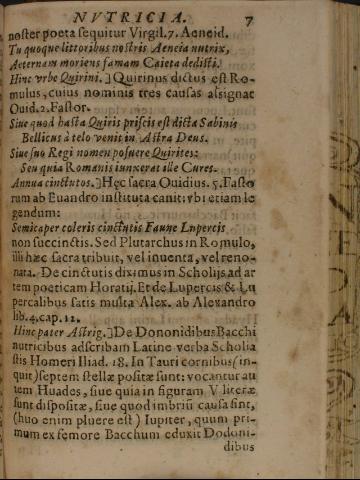 NVTRICIA. 7
noster poeta sequitur Virgil.7. Aeneid.
Tu quoque littoribus nostris Aeneia nutrix,
Aeternam moriens famam Caieta dedisti.
Hinc vrbe Quirini.] Quirinus dictus est Ro-
mulus, cuius nominis tres causas assignat
Ouid.2. Fastor.
Siue quod hasta Quiris priscis est dicta Sabinis
Bellicus à telo venit in Astra Deus.
Siue suo Regi nomen posuere Quirites:
Seu quia Romanis iunxerat ille Cures.
Annua cinctutos.] Hęc sacra Ouidius. 5. Fasto
rum ab Euandro instituta canit: vbi etiam le
gendum:
Semicaper coleris cinctutis Faune Lupercis
non succinctis. Sed Plutarchus in Romulo,
illi hæc sacra tribuit, vel inuenta, vel reno-
nata. De cinctutis diximus in Scholijs ad ar
tem poeticam Horatij. Et de Lupercis & Lu
percalibus satis multa Alex. ab Alexandro
lib.4.cap.12.
Hinc pater Astrig.] De Dononidibus Bacchi
nutricibus adscribam Latine verba Scholia
stis Homeri Iliad. 18. In Tauri cornibus (in-
quit) septem stellæ positæ sunt: vocantur au
tem Huades, siue quia in figuram V literæ
sunt dispositæ, siue quod imbriũ causa sint,
(huo enim pluere est) Iupiter, quum pri-
mum ex femore Bacchum eduxit Dodoni-
dibus